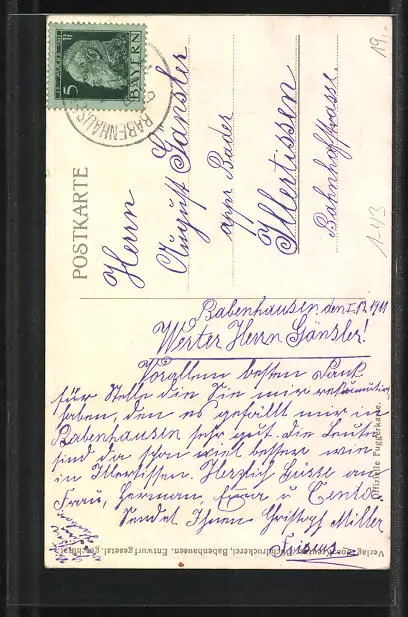 19.-
5
BAYERN
BABENHAUSEN
POSTKARTE
Herrn
August Gänsler
appr Bader
Illertissen
Bahnhofstrasse.
1-4/3
Babenhausen, den I.12.1911
Werter Herrn Gänsler!
Vorallem besten Dank
für Stelle die Sie mir
haben, den es gefällt mir in
Babenhausen sehr gut. die Leute
sind da schon viel besser wie
in Illertissen. Herzlich Grüsse an
Frau, Herman, u
Sendet Ihnen Christoph Miller
Friseur
Offizielle Fuggerkarte.
Verlag Buchdruckerei, Babenhausen. Entwurf gesetzl. geschützt